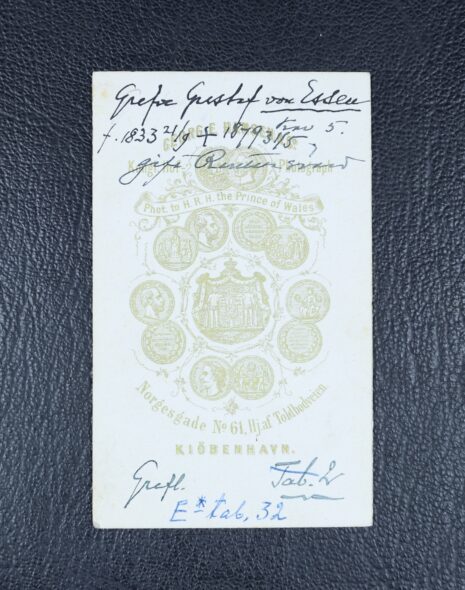 Grefve Gustaf von Essen
f. 1833 21/9 † 1879 31/5
GEORG E. HANSEN
Kongl. Hof Photograph
gift
Phot. to H.R.H. the Prince of Wales
Norgesgade No 61. Hj. af Toldbodveien.
KIÖBENHAVN.
Grefl. Tab. 2
E* tab. 32